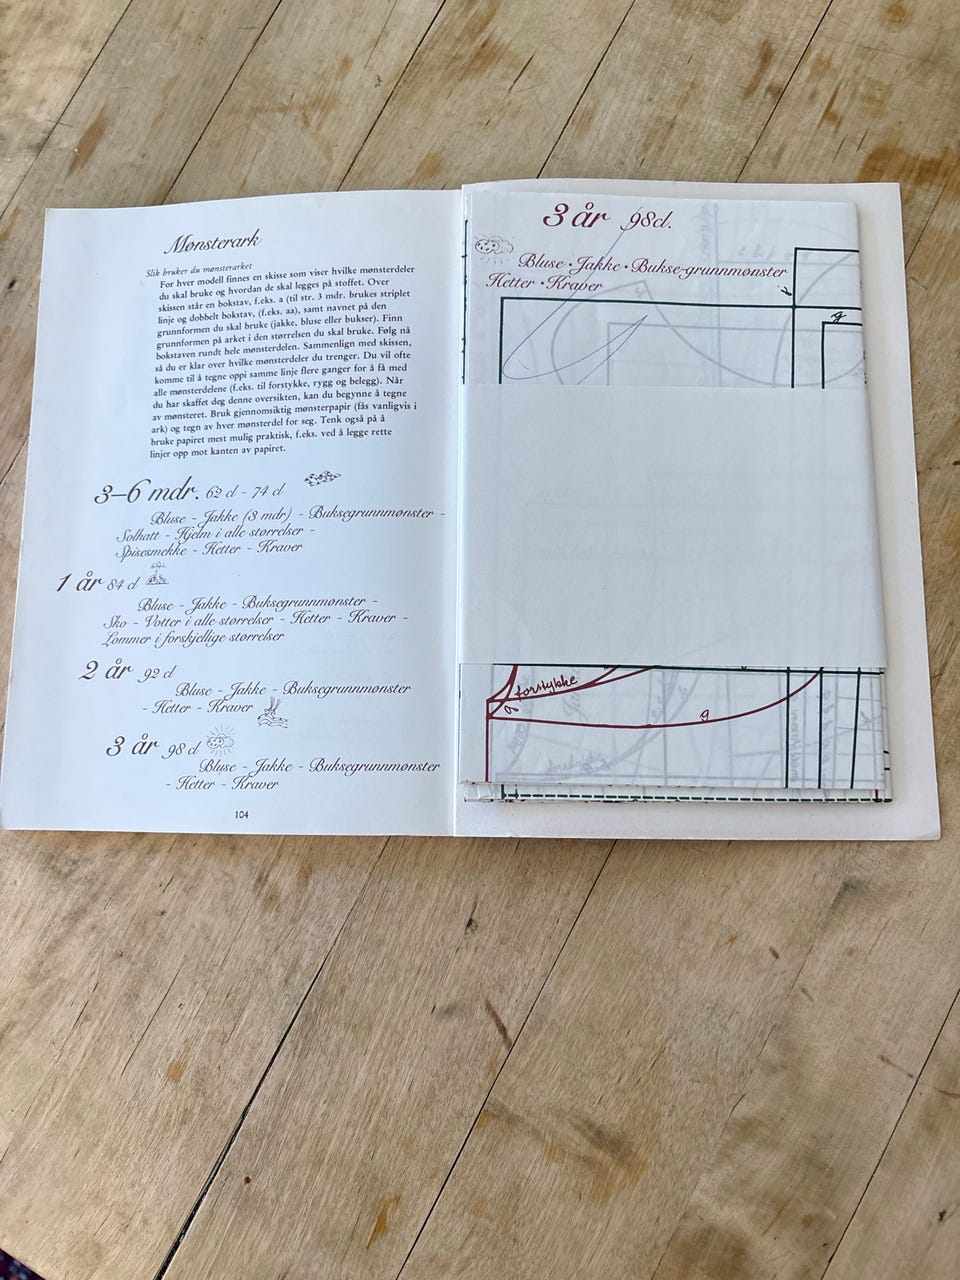 Mønsterark
Slik bruker du mønsterarket
For hver modell finnes en skisse som viser hvilke mønsterdeler
du skal bruke og hvordan de skal legges på stoffet. Over
skissen står en bokstav, f.eks. a (til str. 3 mdr. brukes striplet
linje og dobbelt bokstav, (f.eks. aa), samt navnet på den
grunnformen du skal bruke (jakke, bluse eller bukser). Finn
grunnformen på arket i den størrelsen du skal bruke. Følg nå
bokstaven rundt hele mønsterdelen. Sammenlign med skissen,
så du er klar over hvilke mønsterdeler du trenger. Du vil ofte
komme til å tegne oppi samme linje flere ganger for å få med
alle mønsterdelene (f.eks. til forstykke, rygg og belegg). Når
du har skaffet deg denne oversikten, kan du begynne å tegne
av mønsteret. Bruk gjennomsiktig mønsterpapir (fås vanligvis i
ark) og tegn av hver mønsterdel for seg. Tenk også på å
bruke papiret mest mulig praktisk, f.eks. ved å legge rette
linjer opp mot kanten av papiret.
3–6 mdr. 62 cl - 74 cl
Bluse - Jakke (3 mdr) - Buksegrunnmønster -
Solhatt - Hjelm i alle størrelser -
Spisesmekke - Hetter - Kraver
1 år 84 cl
Bluse - Jakke - Buksegrunnmønster -
Sko - Votter i alle størrelser - Hetter - Kraver -
Lommer i forskjellige størrelser
2 år 92 cl
Bluse - Jakke - Buksegrunnmønster
- Hetter - Kraver
3 år 98 cl
Bluse - Jakke - Buksegrunnmønster
- Hetter - Kraver
104
3 år 98cl.
Bluse · Jakke · Bukse-grunnmønster
Hetter · Kraver
g
forstykke
g